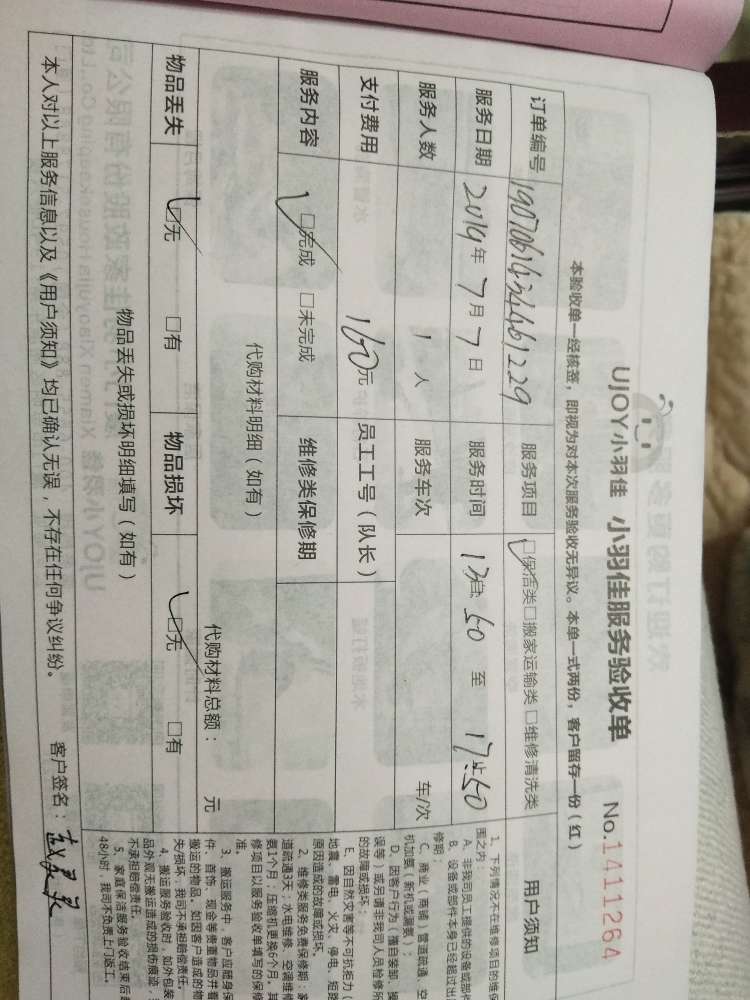 UJOY小羽佳 小羽佳服务验收单 No.1411264
本验收单一经核签，即视为对本次服务验收无异议。本单一式两份，客户留存一份（红）
订单编号 服务项目 ☑保洁类□搬家运输类□维修清洗类
服务日期 2019年7月7日 服务时间 13:50 至 17:50
服务人数 1 人 服务车次 车/次
支付费用 160元 员工工号（队长）
服务内容 ☑完成 □未完成 维修类保修期
代购材料明细（如有）
代购材料总额： 元
物品丢失 ☑无 □有 物品损坏 ☑无 □有
物品丢失或损坏明细填写（如有）
本人对以上服务信息以及《用户须知》均已确认无误，不存在任何争议纠纷。
客户签名：
用户须知
1、下列情况不在维修项目的维保
围之内：
A、非我司员工提供的设备或部件
B、设备或部件本身已经超过出
修期；
C、商业（商铺）管道疏通、空
机加氨（新机或漏氨）；
D、因客户行为（擅自装卸、操
误等）或另请非我司人员检修所
的故障或损坏；
E、因自然灾害等不可抗拒力（
地震、雷电、火灾、停电、短路
原因造成的故障或损坏。
2、维修类服务免费保修期：家
道疏通3天；水电维修、空调维修
氨1个月；压缩机更换6个月。其
修项目以服务验收单填写的保修
准
3、搬运服务中，客户应随身保
件、首饰、现金等贵重物品并看
搬运的物品。如因客户造成的物
失/损坏，我司不承担赔偿责任。
4、搬运服务验收时，如外包装
品外观无搬运造成的损伤痕迹，
不承担赔偿责任。
5、家庭保洁服务验收结束后
48小时，我司不负责上门返工。